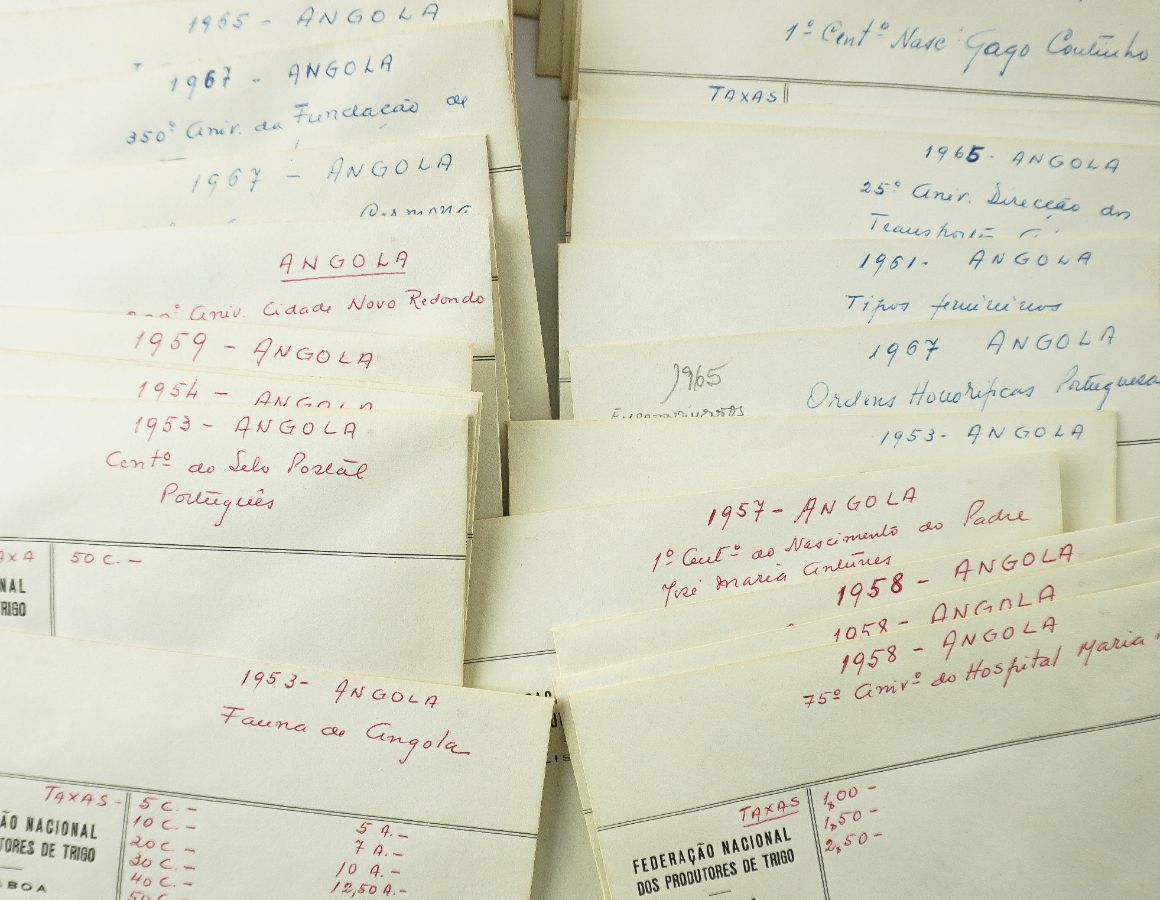 1965 - ANGOLA
1967 - ANGOLA
350º Aniv. da Fundação de
1967 - ANGOLA
ANGOLA
Aniv. Cidade Novo Redondo
1959 - ANGOLA
1954 - ANGOLA
1953 - ANGOLA
Centº do Selo Postal
Português
TAXA 50 C. -
NAL
TRIGO
1953 - ANGOLA
Fauna de Angola
TAXAS -
5 C. -
10 C. -
20 C. -
30 C. -
40 C. -
50 C. -
5 A. -
7 A. -
10 A. -
12,50 A. -
ÃO NACIONAL
TORES DE TRIGO
SBOA
1º Centº Nasc. Gago Coutinho
TAXAS
1965 - ANGOLA
25º Aniv. Direcção dos
1961 - ANGOLA
Tipos femininos
1967 ANGOLA
Ordens Honoríficas Portuguesa
1965
1953 - ANGOLA
1957 - ANGOLA
1º Centº do Nascimento do Padre
José Maria Antunes
1958 - ANGOLA
1958 - ANGOLA
1958 - ANGOLA
75º Anivº do Hospital Maria
TAXAS
1,00 -
1,50 -
2,50 -
FEDERAÇÃO NACIONAL
DOS PRODUTORES DE TRIGO